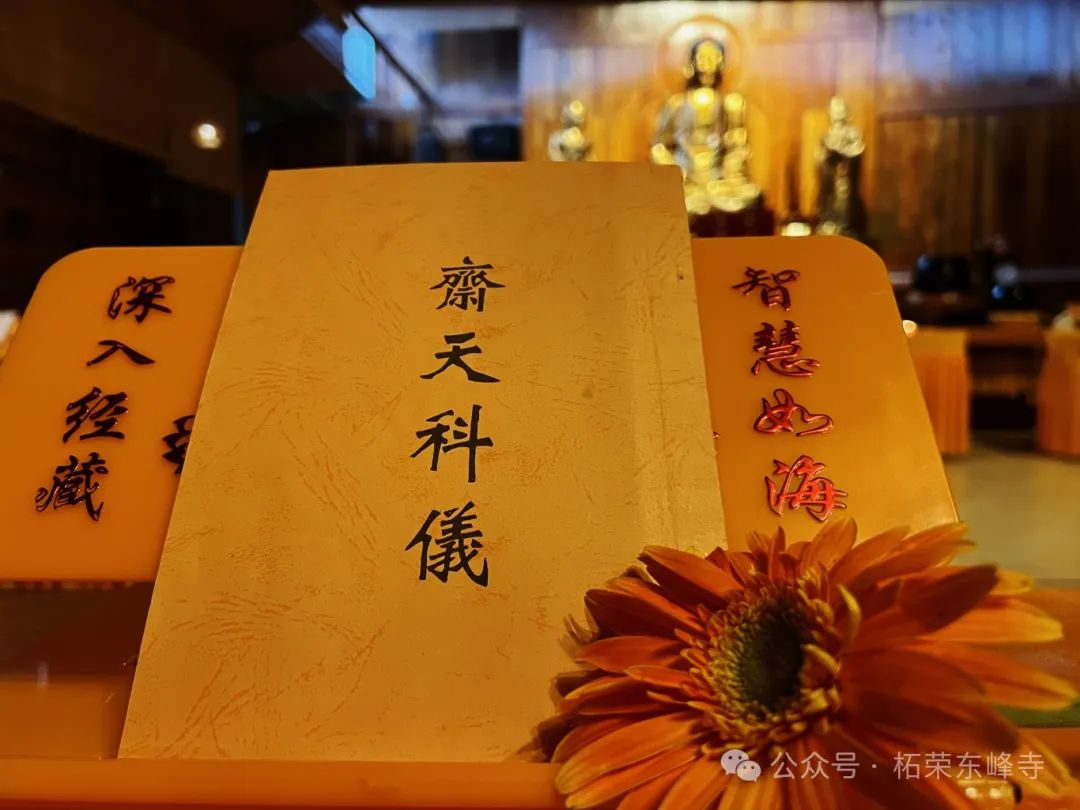 深入经藏
齋天科儀
智慧如海
公众号 · 柘荣东峰寺